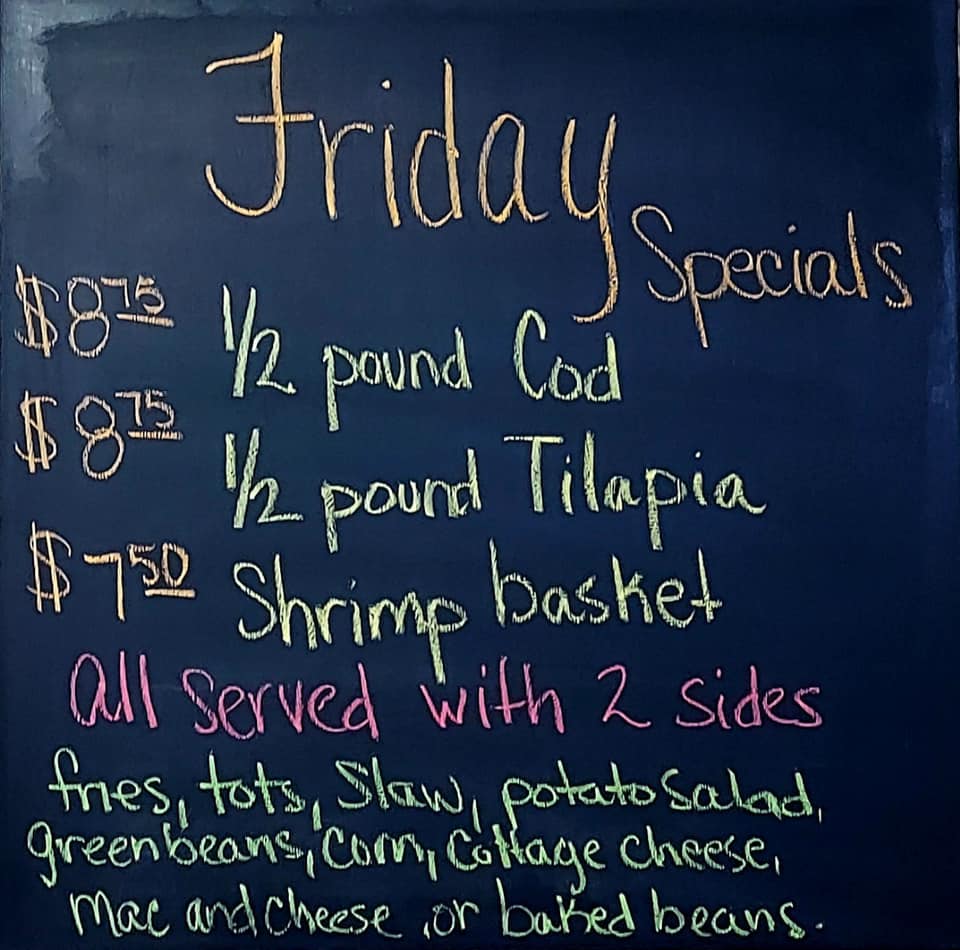 Friday
Specials
$8.75 1/2 pound Cod
$8.75 1/2 pound Tilapia
$7.50 Shrimp basket
All served with 2 sides
fries, tots, Slaw, potato Salad,
greenbeans, Corn, Cottage cheese,
Mac and cheese, or baked beans.